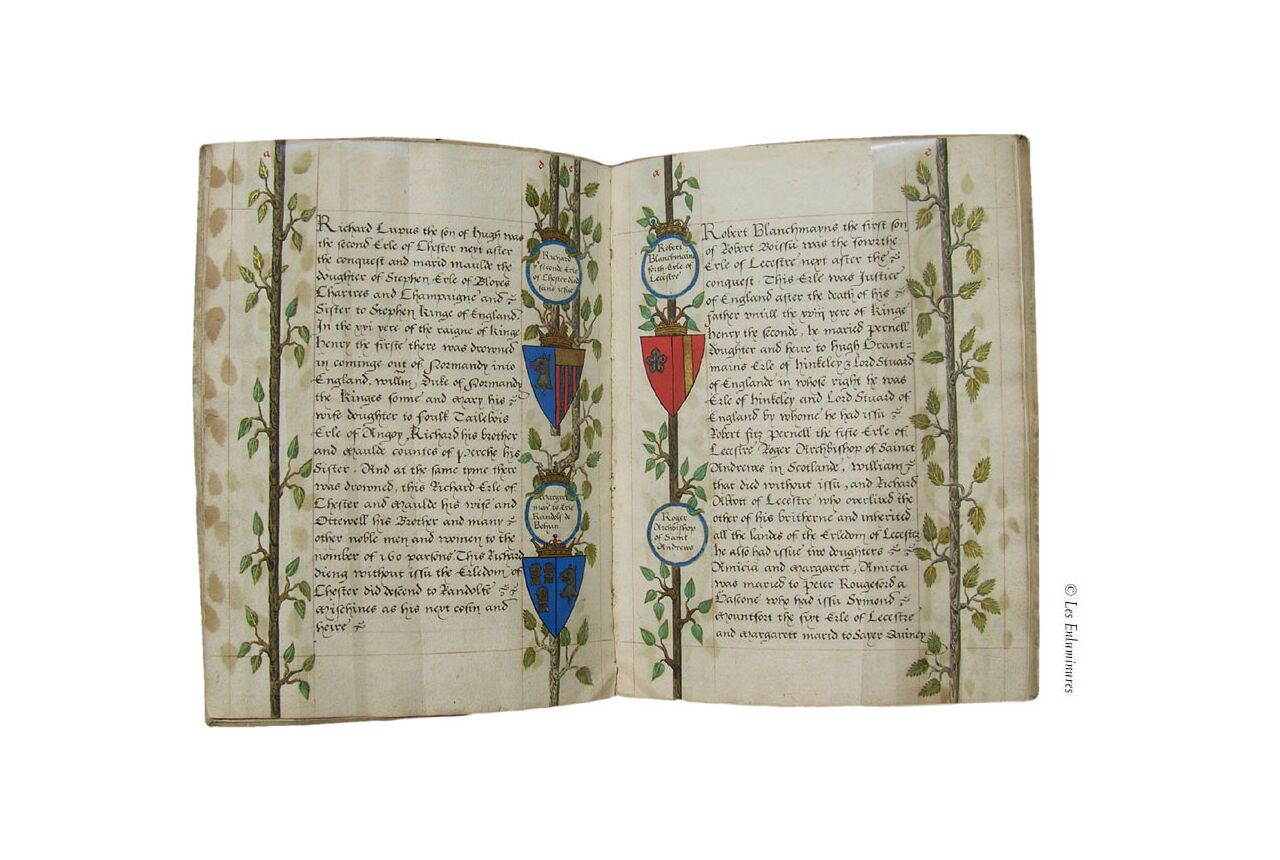 a
Richard Lupus the son of Hugh was
the second Erle of Chester next after
the conquest and marid maulde the
doughter of Stephen Erle of Bloyes
Chartres and Champaigne and
Sister to Stephen Kinge of England.
In the xxi yere of the raigne of Kinge
henry the firste there was drowned
in cominge out of Normandy into
England, willm Duke of Normandy
the Kinges sonne and Mary his
wife doughter to Foulk Tailebois
Erle of Angoy, Richard his brother
and Maulde countes of Perche his
Sister. And at the same tyme there
was drowned, this Richard Erle of
Chester and Maulde his wife and
Ottewell his Brother and many
other noble men and women to the
nomber of 160 parsons. This Richard
dieng without issu the Erledom of
Chester did descend to Randolfe
Mischines as his next cosin and
heire
d
e
Richard
seconde Erle
of Chester died
sans issue
Margret
mar to Erle
Randolf de
Bohun
a
Robert
Blanchmains
forth Erle of
Lecestre
Roger
Archbishop
of Saint
Andrews
Robert Blanchmayns the first son
of Robert Boissu was the fowrthe
Erle of Lecestre next after the
conquest. This Erle was Justice
of England after the death of his
father untill the xviij yere of Kinge
henry the seconde, he maried Pernell
doughter and heire to Hugh Grant=
mains Erle of hinkeley & Lord Stuard
of Englande in whose right he was
Erle of hinkeley and Lord Stuard of
England by whome he had issu
Robert fitz Pernell the fifte Erle of
Lecestre Roger Archbishop of Sainct
Andrewes in Scotlande, William
that died without issu, and Richard
Abbott of Lecestre who overlived the
other of his britherne and inherited
all the landes of the Erledom of Lecestre
he also had issue two doughters
Amicia and Margarett, Amicia
was maried to Peter Rougeford a
Gascone who had issu Symond
Mountfort the sixt Erle of Lecestre
and Margarett marid to Sayer Quincy
e
© Les Enluminures